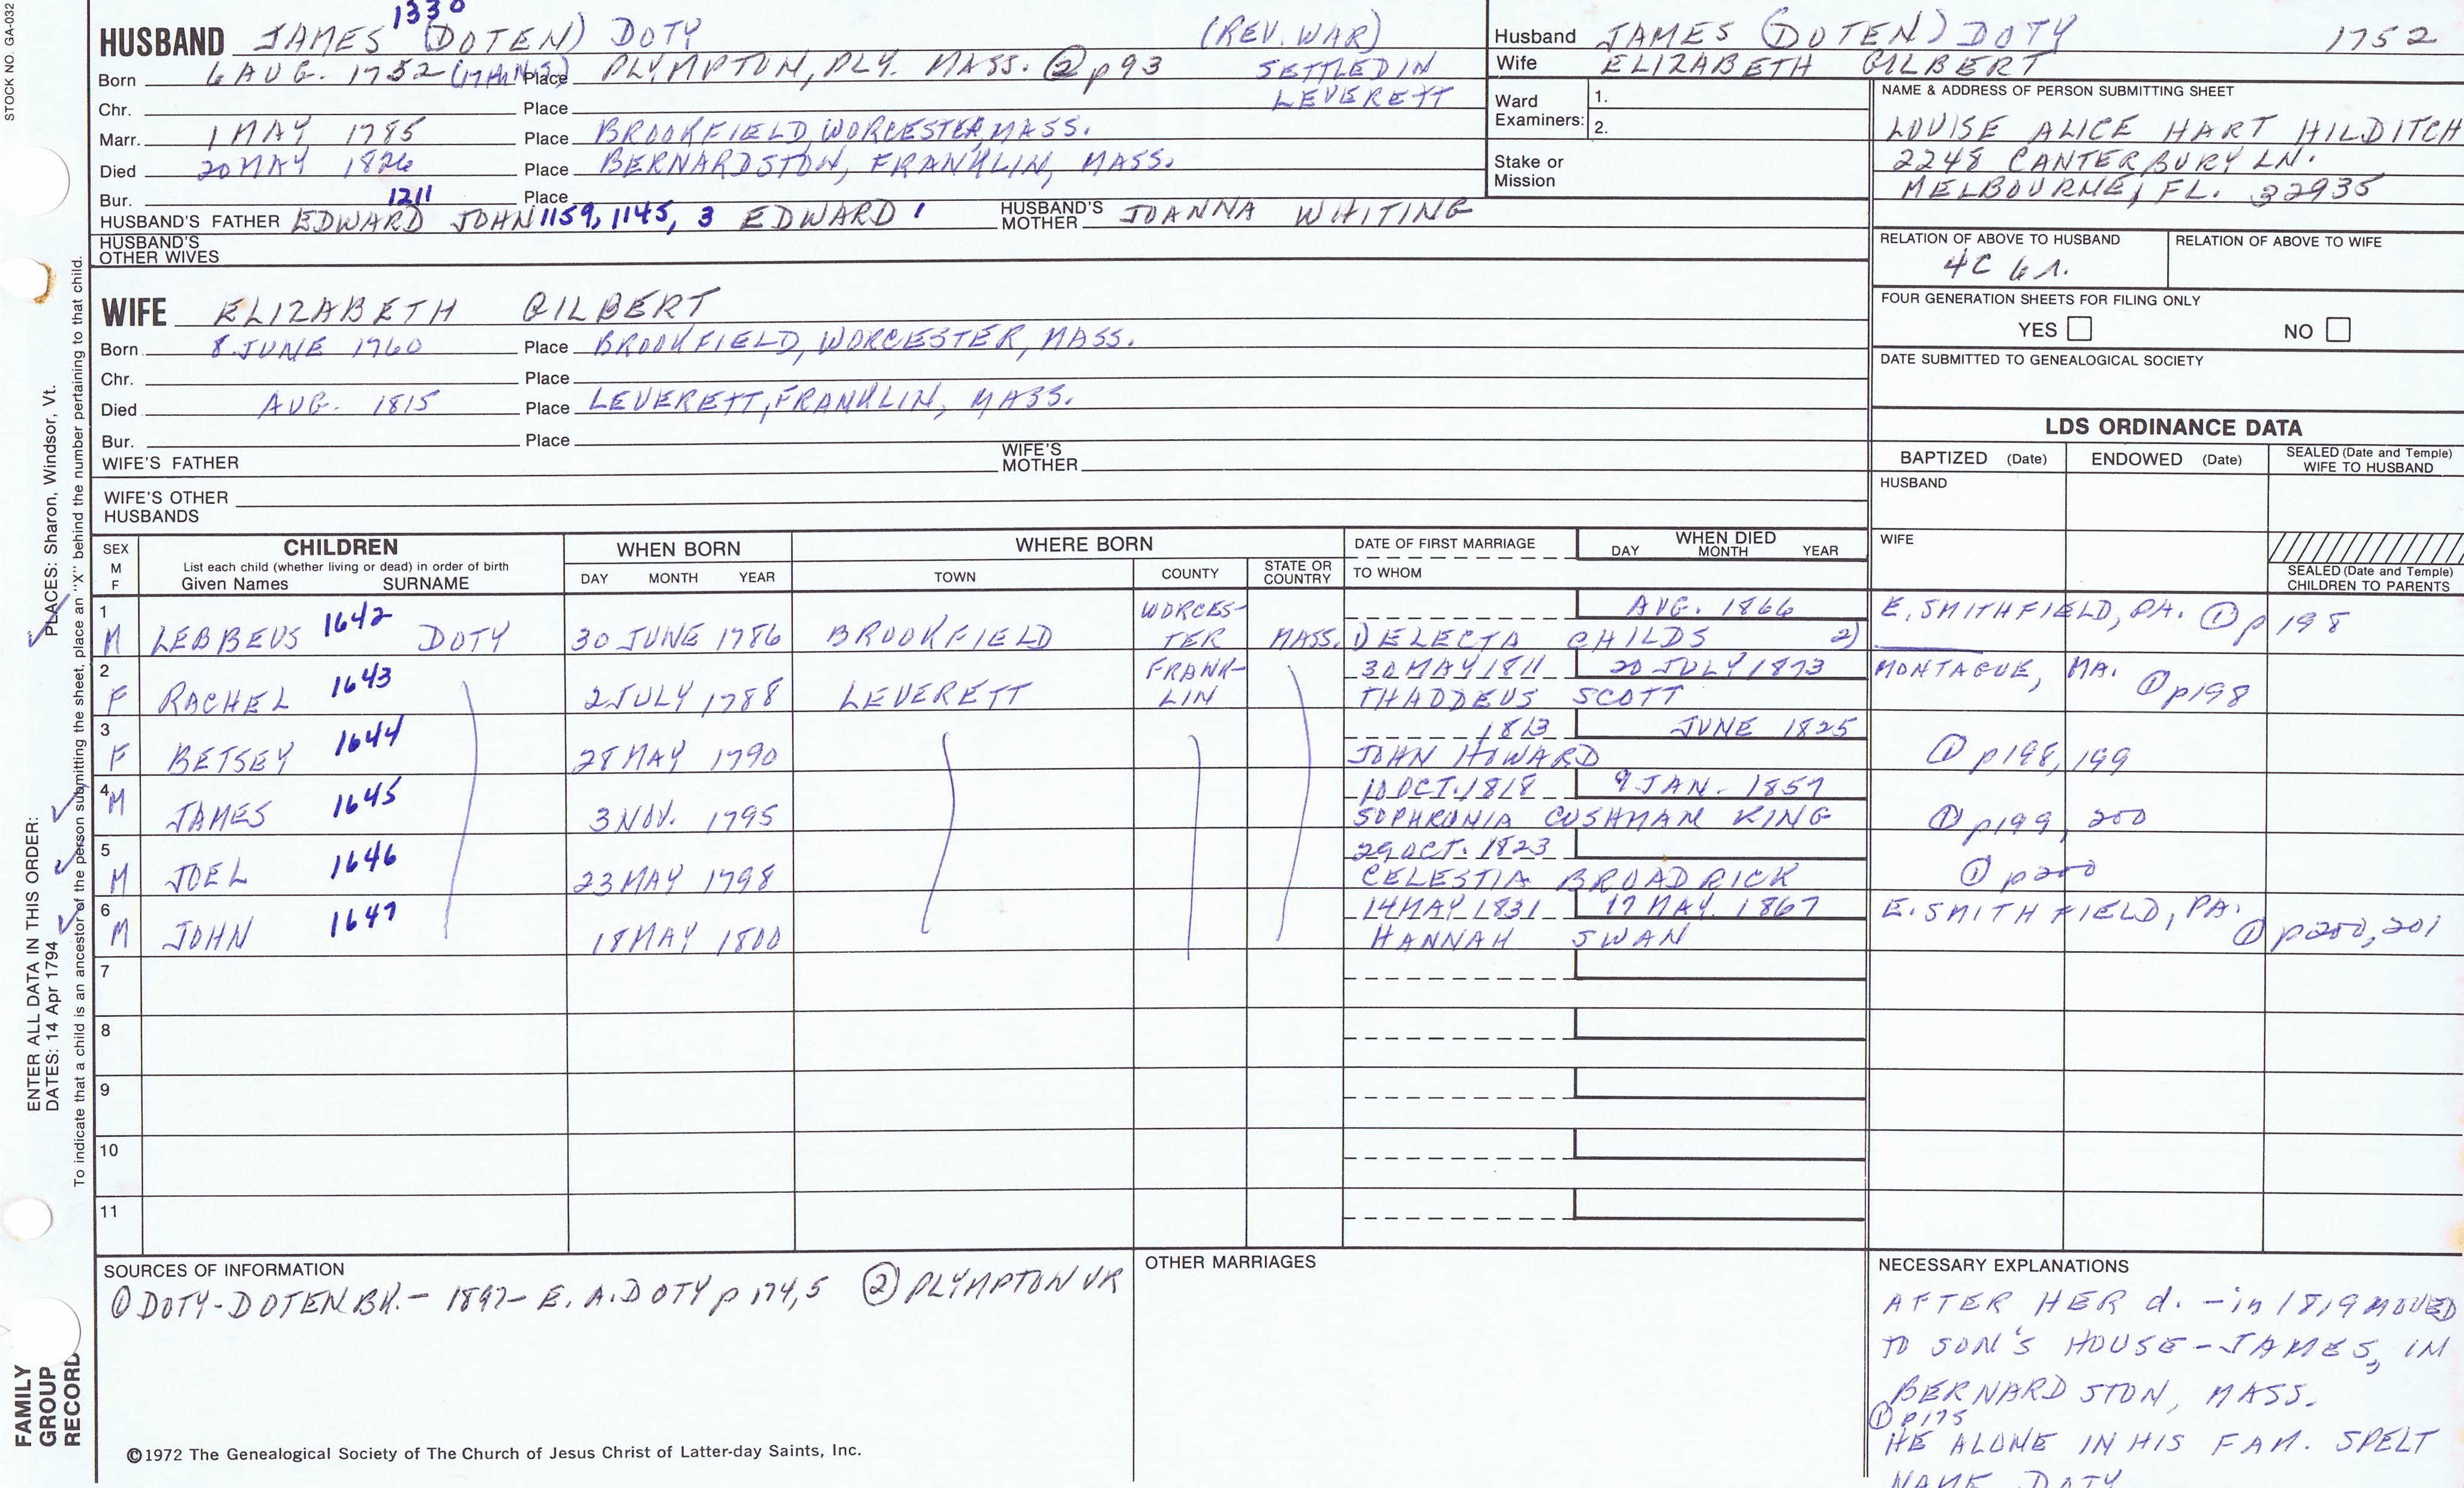 STOCK NO. GA-032
1330
HUSBAND JAMES (DOTEN) DOTY (REV. WAR)
Born 6 AUG. 1752 Place PLYMPTON, PLY. MASS. ② p 93 SETTLED IN
Chr. Place LEVERETT
Marr. 1 MAY 1785 Place BROOKFIELD, WORCESTER, MASS.
Died 20 MAY 1826 Place BERNARDSTON, FRANKLIN, MASS.
Bur. Place
1211
HUSBAND'S FATHER EDWARD JOHN 1159, 1145, 3 EDWARD 1 HUSBAND'S MOTHER JOANNA WHITING
HUSBAND'S OTHER WIVES
WIFE ELIZABETH GILBERT
Born 8 JUNE 1760 Place BROOKFIELD, WORCESTER, MASS.
Chr. Place
Died AUG. 1815 Place LEVERETT, FRANKLIN, MASS.
Bur. Place
WIFE'S FATHER WIFE'S MOTHER
WIFE'S OTHER HUSBANDS
Husband JAMES (DOTEN) DOTY 1752
Wife ELIZABETH GILBERT
Ward Examiners: 1.
2.
Stake or Mission
NAME & ADDRESS OF PERSON SUBMITTING SHEET
LOUISE ALICE HART HILDITCH
2248 CANTERBURY LN.
MELBOURNE, FL. 32935
RELATION OF ABOVE TO HUSBAND RELATION OF ABOVE TO WIFE
4C 6 r.
FOUR GENERATION SHEETS FOR FILING ONLY
YES NO
DATE SUBMITTED TO GENEALOGICAL SOCIETY
LDS ORDINANCE DATA
BAPTIZED (Date) ENDOWED (Date) SEALED (Date and Temple) WIFE TO HUSBAND
HUSBAND
WIFE
SEALED (Date and Temple) CHILDREN TO PARENTS
SEX M F
CHILDREN
List each child (whether living or dead) in order of birth
Given Names SURNAME
WHEN BORN
DAY MONTH YEAR
WHERE BORN
TOWN COUNTY STATE OR COUNTRY
DATE OF FIRST MARRIAGE
TO WHOM
WHEN DIED
DAY MONTH YEAR
1 WORCES- AUG. 1866 E. SMITHFIELD, PA. ① p 198
M LEBBEUS 1642 DOTY 30 JUNE 1786 BROOKFIELD TER MASS. 1) ELECTA CHILDS 2)
2 FRANK- 30 MAY 1811 20 JULY 1873 MONTAGUE, MA.
F RACHEL 1643 2 JULY 1788 LEVERETT LIN THADDEUS SCOTT ① p198
3 1813 JUNE 1825
F BETSEY 1644 28 MAY 1790 JOHN HOWARD ① p198, 199
4 10 OCT. 1818 9 JAN. 1857
M JAMES 1645 3 NOV. 1795 SOPHRONIA CUSHMAN KING ① p199, 200
5 29 OCT. 1823
M JOEL 1646 23 MAY 1798 CELESTIA BROADRICK ① p200
6 14 MAY 1831 17 MAY. 1867 E. SMITHFIELD, PA.
M JOHN 1647 18 MAY 1800 HANNAH SWAN ① p200, 201
7
8
9
10
11
SOURCES OF INFORMATION
① DOTY-DOTEN BK. - 1897 - E. A. DOTY p 174,5 ② PLYMPTON VR
OTHER MARRIAGES
NECESSARY EXPLANATIONS
AFTER HER d. - in 1819 MOVED
TO SON'S HOUSE - JAMES, IN
BERNARDSTON, MASS.
① p175
HE ALONE IN HIS FAM. SPELT
NAME DOTY
©1972 The Genealogical Society of The Church of Jesus Christ of Latter-day Saints, Inc.
FAMILY GROUP RECORD
ENTER ALL DATA IN THIS ORDER:
DATES: 14 Apr 1794 PLACES: Sharon, Windsor, Vt.
To indicate that a child is an ancestor of the person submitting the sheet, place an "X" behind the number pertaining to that child.